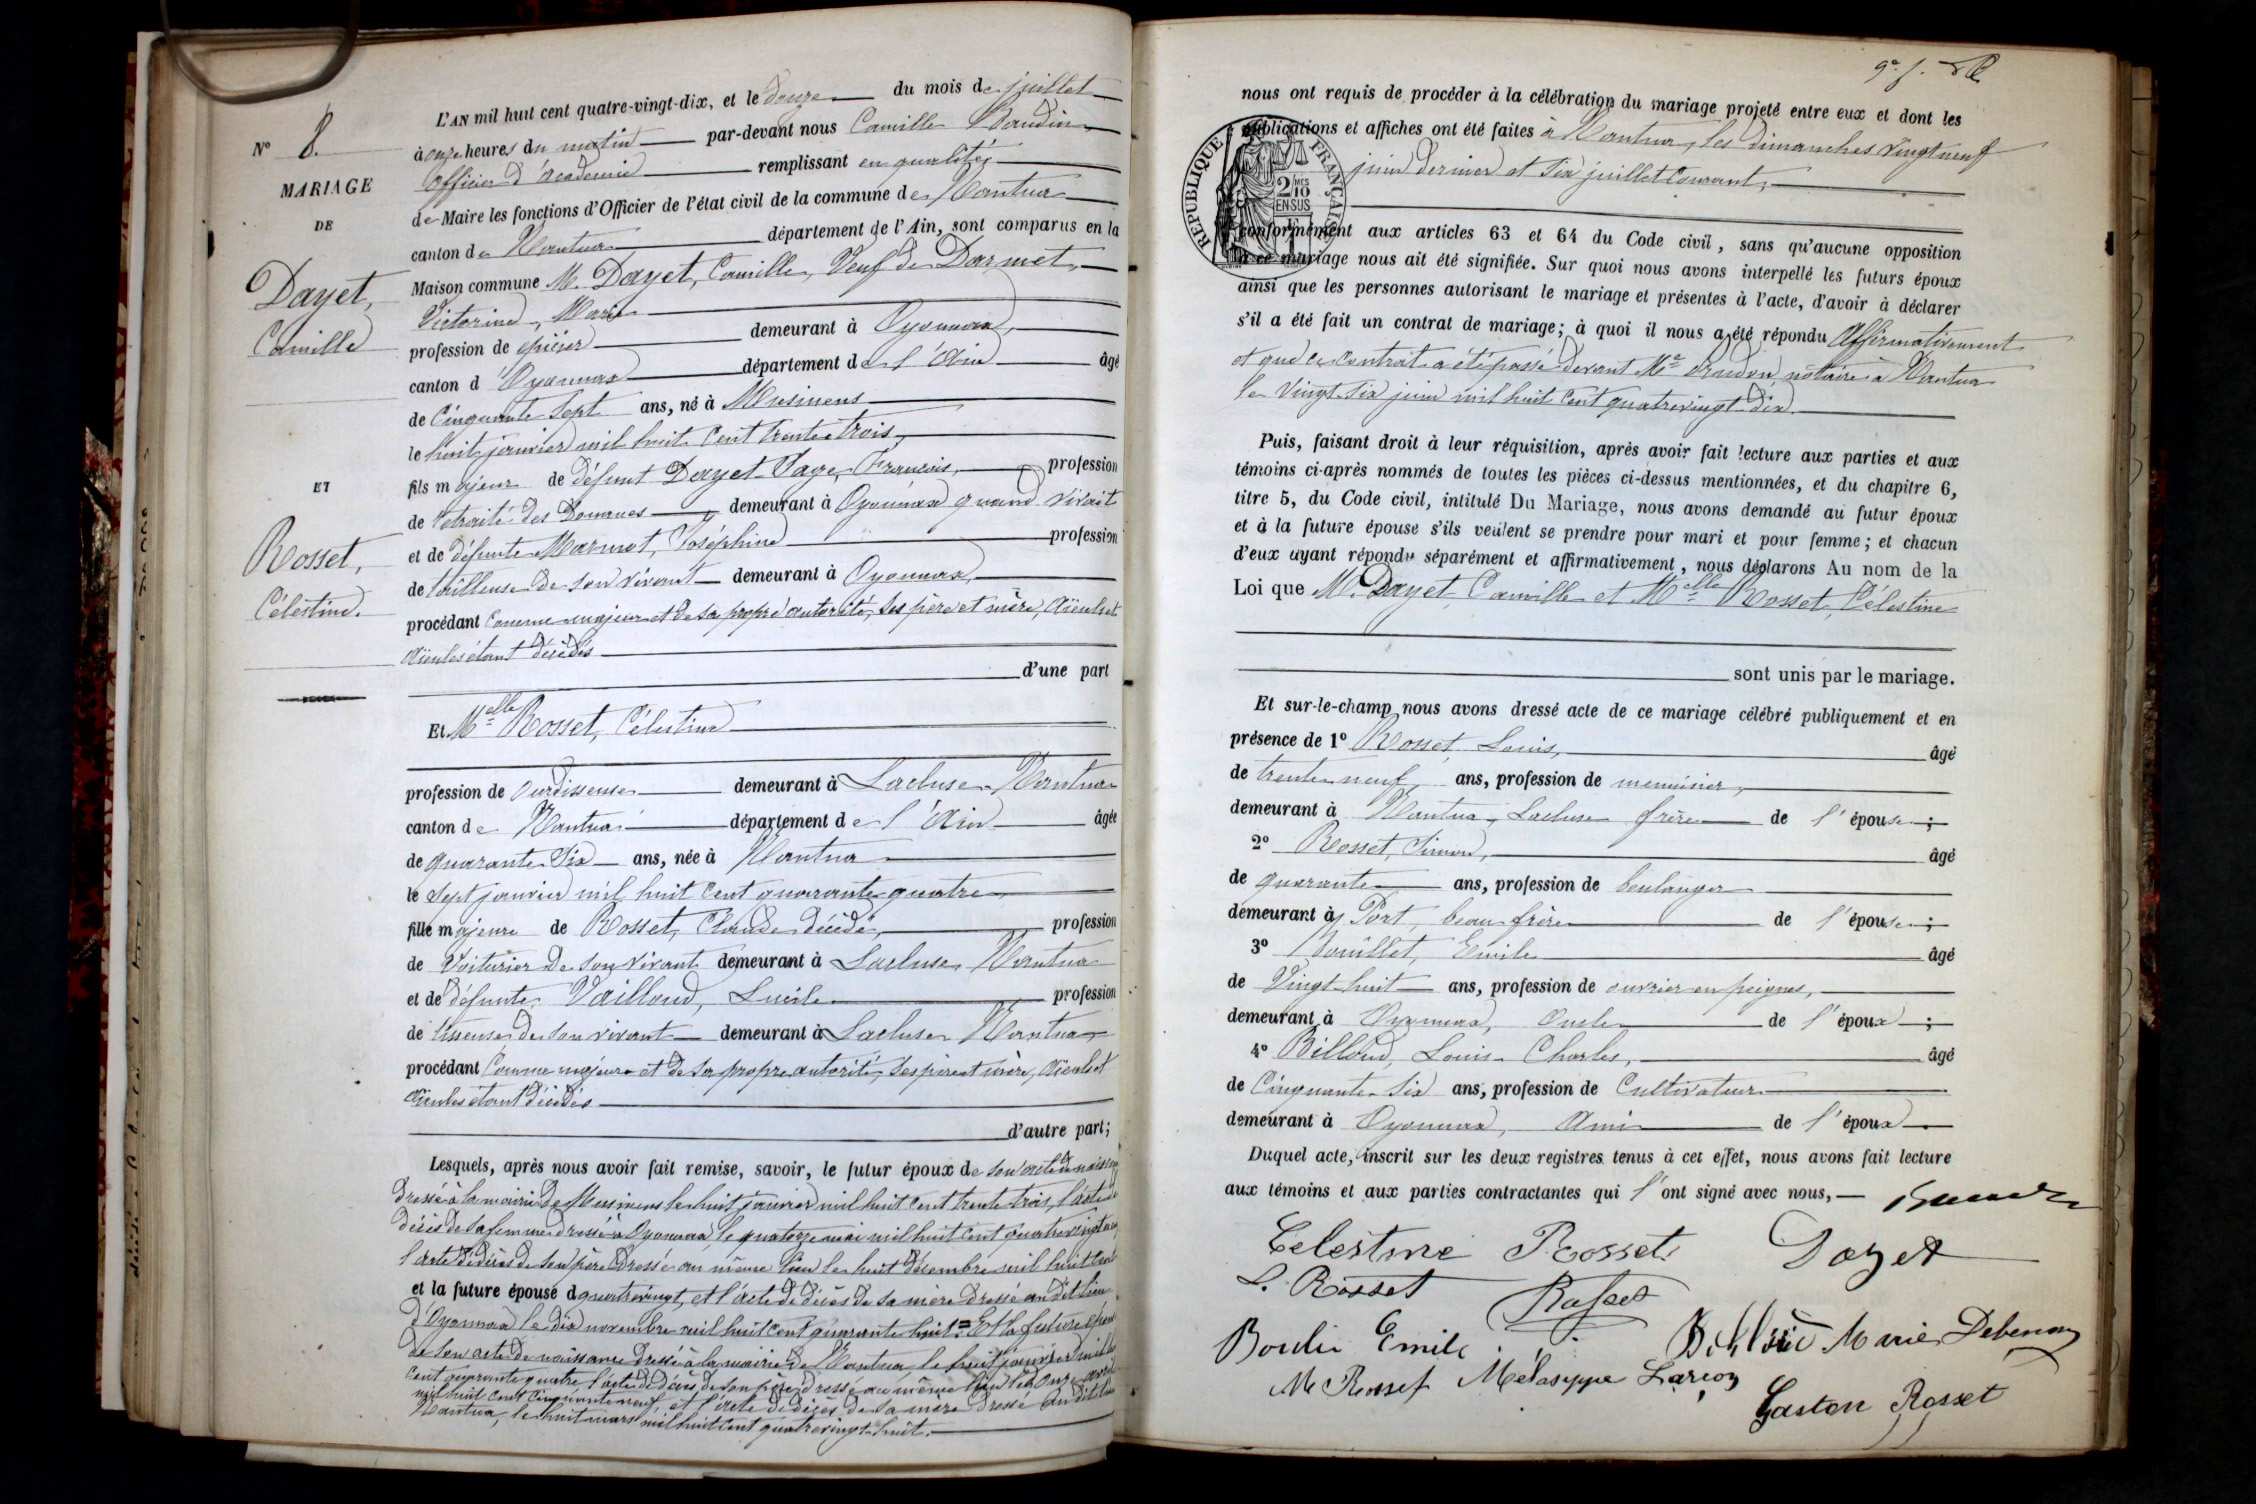 L'AN mil huit cent quatre-vingt-dix, et le douze du mois de juillet
N° 8.
à onze heures du matin par-devant nous Camille Baudin
MARIAGE
officier d'académie remplissant en qualité
DE
de Maire les fonctions d'Officier de l'état civil de la commune de Nantua
canton de Nantua département de l'Ain, sont comparus en la
Dayet,
Camille
Maison commune M. Dayet, Camille, Veuf de Darmet,
Victorine, Marie
profession de épicier demeurant à Oyonnax,
canton d'Oyonnax département de l'Ain âgé
de Cinquante Sept ans, né à Musinens
le huit janvier mil huit cent trente trois,
ET
fils majeur de défunt Dayet François, profession
de retraité des Douanes demeurant à Oyonnax quand vivait
et de défunte Marmet, Joséphine profession
Rosset,
Célestine.
de tailleuse de son vivant demeurant à Oyonnax,
procédant comme majeur et de sa propre autorité, ses père et mère, aïeuls et
aïeules étant décédés
d'une part
Et Melle Rosset, Célestine
profession de Ourdisseuse demeurant à Lacluse Nantua
canton de Nantua département de l'Ain âgée
de quarante Six ans, née à Nantua
le sept janvier mil huit cent quarante quatre
fille majeure de Rosset, Claude décédé, profession
de Voiturier de son vivant demeurant à Lacluse Nantua
et de défunte Vailloud, Lucile profession
de tisseuse de son vivant demeurant à Lacluse Nantua
procédant Comme majeure et de sa propre autorité, ses père et mère, aïeuls et
aïeules étant décédés
d'autre part;
Lesquels, après nous avoir fait remise, savoir, le futur époux de son acte de naissance
dressé à la mairie de Musinens le huit janvier mil huit cent trente trois, l'acte de
décès de sa femme dressé à Oyonnax, le quatorze mai mil huit cent quatre vingt
l'acte de décès de son père dressé au même lieu le huit décembre mil huit cent
et la future épouse d quatre vingt, et l'acte de décès de sa mère dressé au dit lieu
d'Oyonnax le dix novembre mil huit cent quarante huit = Et la future épouse
de son acte de naissance dressé à la mairie de Nantua, le huit janvier mil huit
cent quarante quatre l'acte de décès de son père dressé au même lieu le onze avril
mil huit cent cinquante neuf et l'acte de décès de sa mère dressé au dit lieu
Nantua, le huit mars mil huit cent quatre vingt huit.
nous ont requis de procéder à la célébration du mariage projeté entre eux et dont les
publications et affiches ont été faites à Nantua, les dimanches vingt neuf
juin dernier et Six juillet Courant,
RÉPUBLIQUE FRANÇAISE
2/10 MES
EN SUS
conformément aux articles 63 et 64 du Code civil, sans qu'aucune opposition
à ce mariage nous ait été signifiée. Sur quoi nous avons interpellé les futurs époux
ainsi que les personnes autorisant le mariage et présentes à l'acte, d'avoir à déclarer
s'il a été fait un contrat de mariage; à quoi il nous a été répondu Affirmativement
et que ce contrat a été passé devant Me notaire à Nantua
le Vingt Six juin mil huit cent quatre vingt dix.
Puis, faisant droit à leur réquisition, après avoir fait lecture aux parties et aux
témoins ci-après nommés de toutes les pièces ci-dessus mentionnées, et du chapitre 6,
titre 5, du Code civil, intitulé Du Mariage, nous avons demandé au futur époux
et à la future épouse s'ils veulent se prendre pour mari et pour femme; et chacun
d'eux ayant répondu séparément et affirmativement, nous déclarons Au nom de la
Loi que M. Dayet, Camille et Melle Rosset, Célestine
sont unis par le mariage.
Et sur-le-champ nous avons dressé acte de ce mariage célébré publiquement et en
présence de 1° Rosset, Louis, âgé
de trente neuf ans, profession de menuisier,
demeurant à Nantua, Lacluse frère de l'épouse;
2° Rosset, Simon, âgé
de quarante ans, profession de boulanger
demeurant à Port, beau frère de l'épouse;
3° Bouillet, Emile âgé
de Vingt huit ans, profession de ouvrier en peignes,
demeurant à Oyonnax, Oncle de l'époux;
4° Billoud, Louis Charles, âgé
de Cinquante Six ans, profession de Cultivateur
demeurant à Oyonnax, Ami de l'époux
Duquel acte, inscrit sur les deux registres tenus à cet effet, nous avons fait lecture
aux témoins et aux parties contractantes qui l'ont signé avec nous,
Celestine Rosset Dayet
L. Rosset Rosset
Emile Marie Debenay
M Rosset
Gaston Rosset